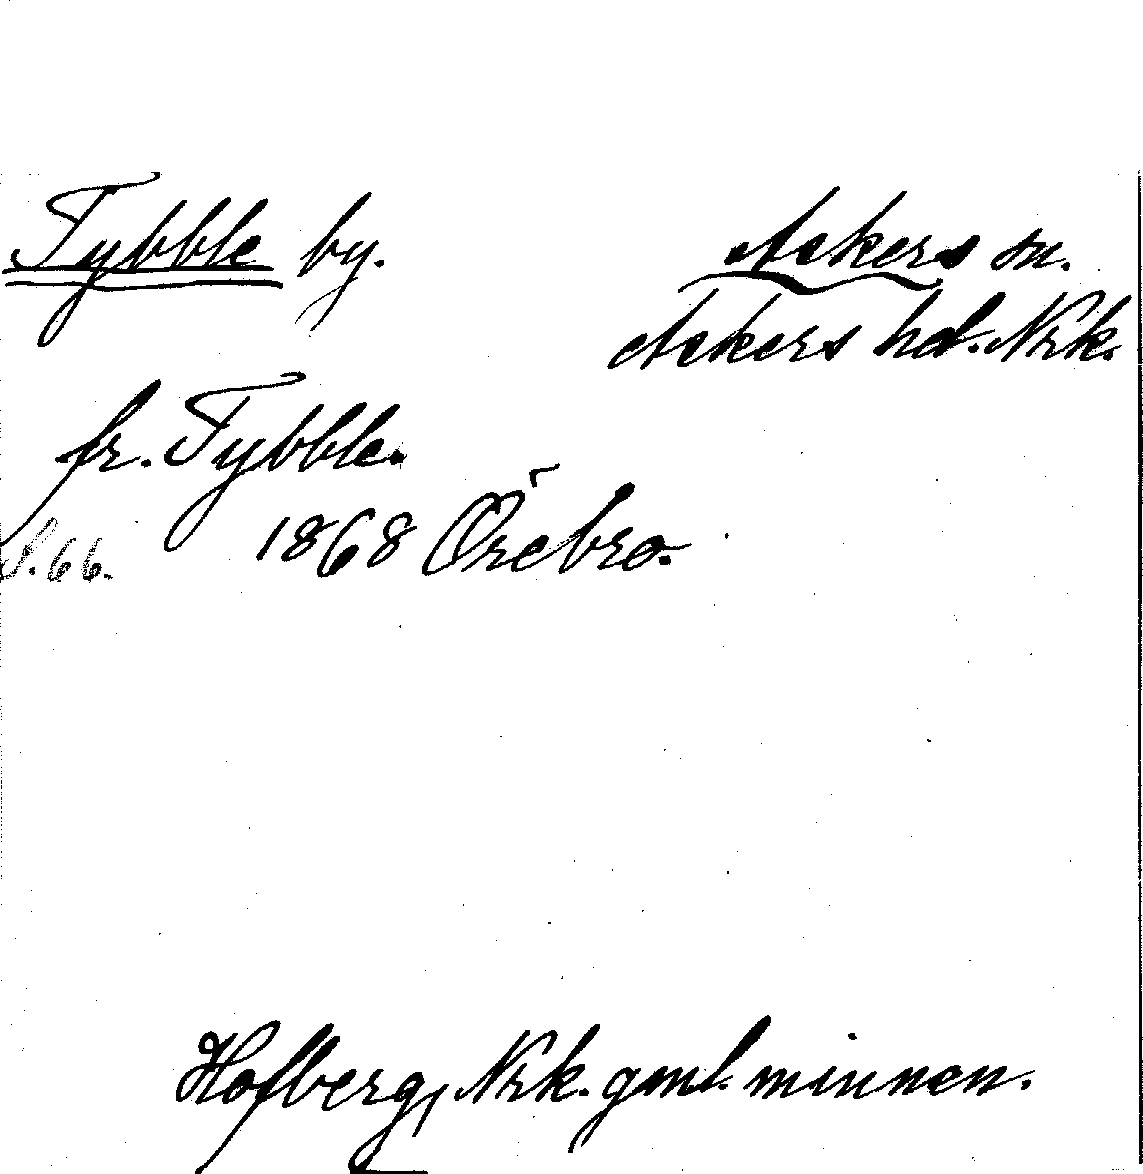 Tybble by. Askers sn.
Askers hd. Nrk.
fr. Tybble.
S.66. 1868 Örebro.
Hofberg, Nrk. gml. minnen.